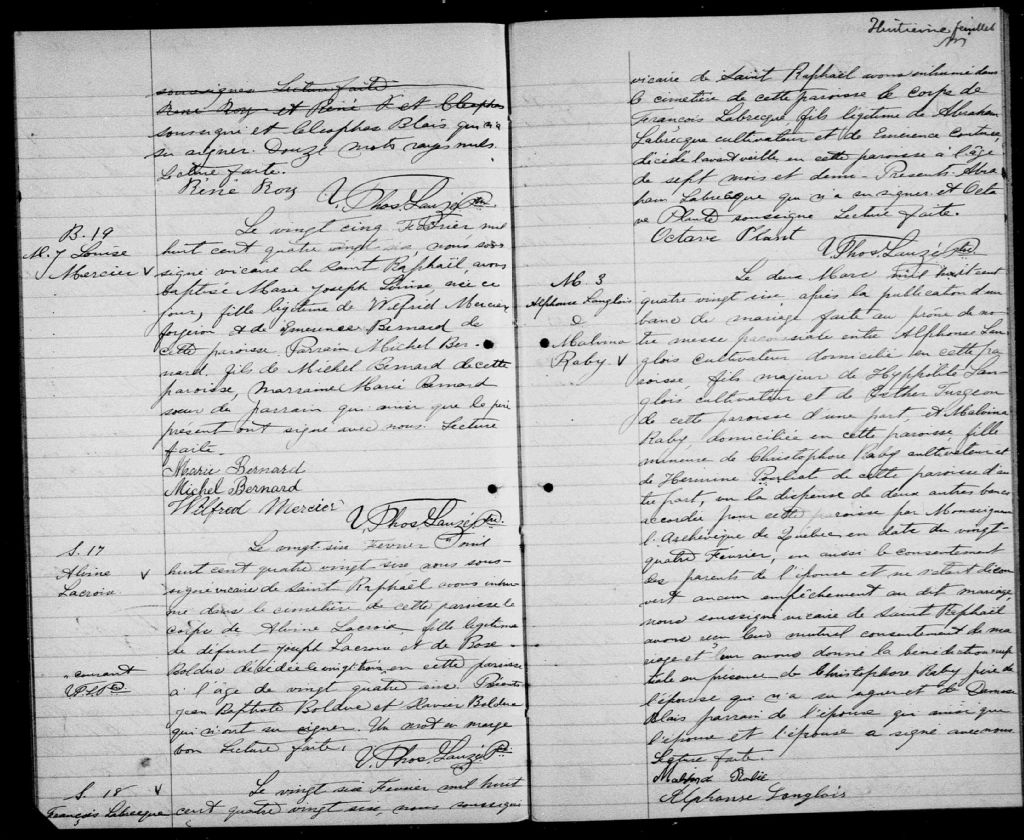 soussignés Lecture faite
René Roy et René X et Cléophas
soussigné et Cléophas Blais qui n'a
su signer. Douze mots rayés nuls.
Lecture faite.
René Roy
V. Thos. Lauzé Ptre
B. 19
M. J. Louise
Mercier
Le vingt cinq Février mil
huit cent quatre vingt six, nous sous-
signé vicaire de Saint Raphaël, avons
baptisé Marie Joseph Louise, née ce
jour, fille légitime de Wilfrid Mercier
forgeron & de Emerence Bernard de
cette paroisse. Parrain Michel Ber-
nard, fils de Michel Bernard de cette
paroisse, marraine Marie Bernard
soeur du parrain qui ainsi que le père
présent ont signé avec nous. Lecture
faite.
Marie Bernard
Michel Bernard
Wilfrod Mercier
V. Thos. Lauzé Ptre.
S. 17
Alvine
Lacroix
Le vingt-six Février mil
huit cent quatre vingt-six nous sous-
signé vicaire de Saint Raphaël avons inhu-
mé dans le cimetière de cette paroisse le
corps de Alvine Lacroix, fille légitime
de défunt Joseph Lacroix et de Rose
Bolduc décédée le vingt trois en cette paroisse
à l'âge de vingt quatre ans. Présents
Jean Baptiste Bolduc et Xavier Bolduc
qui n'ont su signer. Un mot en marge
bon Lecture faite.
"courant
V. T. L. Ptre
V. Thos. Lauzé Ptre
S. 18
François Labrecque
Le vingt six Fevrier mil huit
cent quatre vingt six, nous soussigné
Huitième feuillet
vicaire de Saint Raphaël avons inhumé dans
le cimetière de cette paroisse le corps de
François Labrecque, fils légitime de Abraham
Labrecque cultivateur et de Emérence Couture,
décédé l'avant veille en cette paroisse à l'âge
de sept mois et demi. Présents Abra
ham Labrecque qui n'a su signer et Octa
ve Plante soussigné Lecture faite.
Octave Plant
V. Thos. Lauzé Ptre
M. 3
Alphonse Langlois
&
Malvina
Raby
Le deux Mars mil huit cent
quatre vingt six, après la publication d'un
banc de mariage faite au prône de no
tre messe paroissiale entre Alphonse Lan
glois cultivateur domicilié en cette pa
roisse, fils majeur de Hyppolite Lan
glois cultivateur et de Esther Turgeon
de cette paroisse d'une part, et Malvina
Raby domiciliée en cette paroisse, fille
mineure de Christophore Raby cultivateur et
de Hermine Pouliot de cette paroisse d'au
tre part, vu la dispense de deux autres bancs
accordée pour cette paroisse par Monseigneur
l'Archevêque de Québec en date du vingt-
quatre Février, vu aussi le consentement
des parents de l'épouse et ne s'étant décou
vert aucun empêchement au dit mariage
nous soussigné vicaire de Saint Raphaël
avons reçu leur mutuel consentement de ma
riage et leur avons donné la bénédiction nup
tiale en présence de Christophore Raby père de
l'épouse qui n'a su signer et de Damase
Blais parrain de l'épouse qui ainsi que
l'époux et l'épouse a signé avec nous
Lecture faite.
Alphonse Langlois